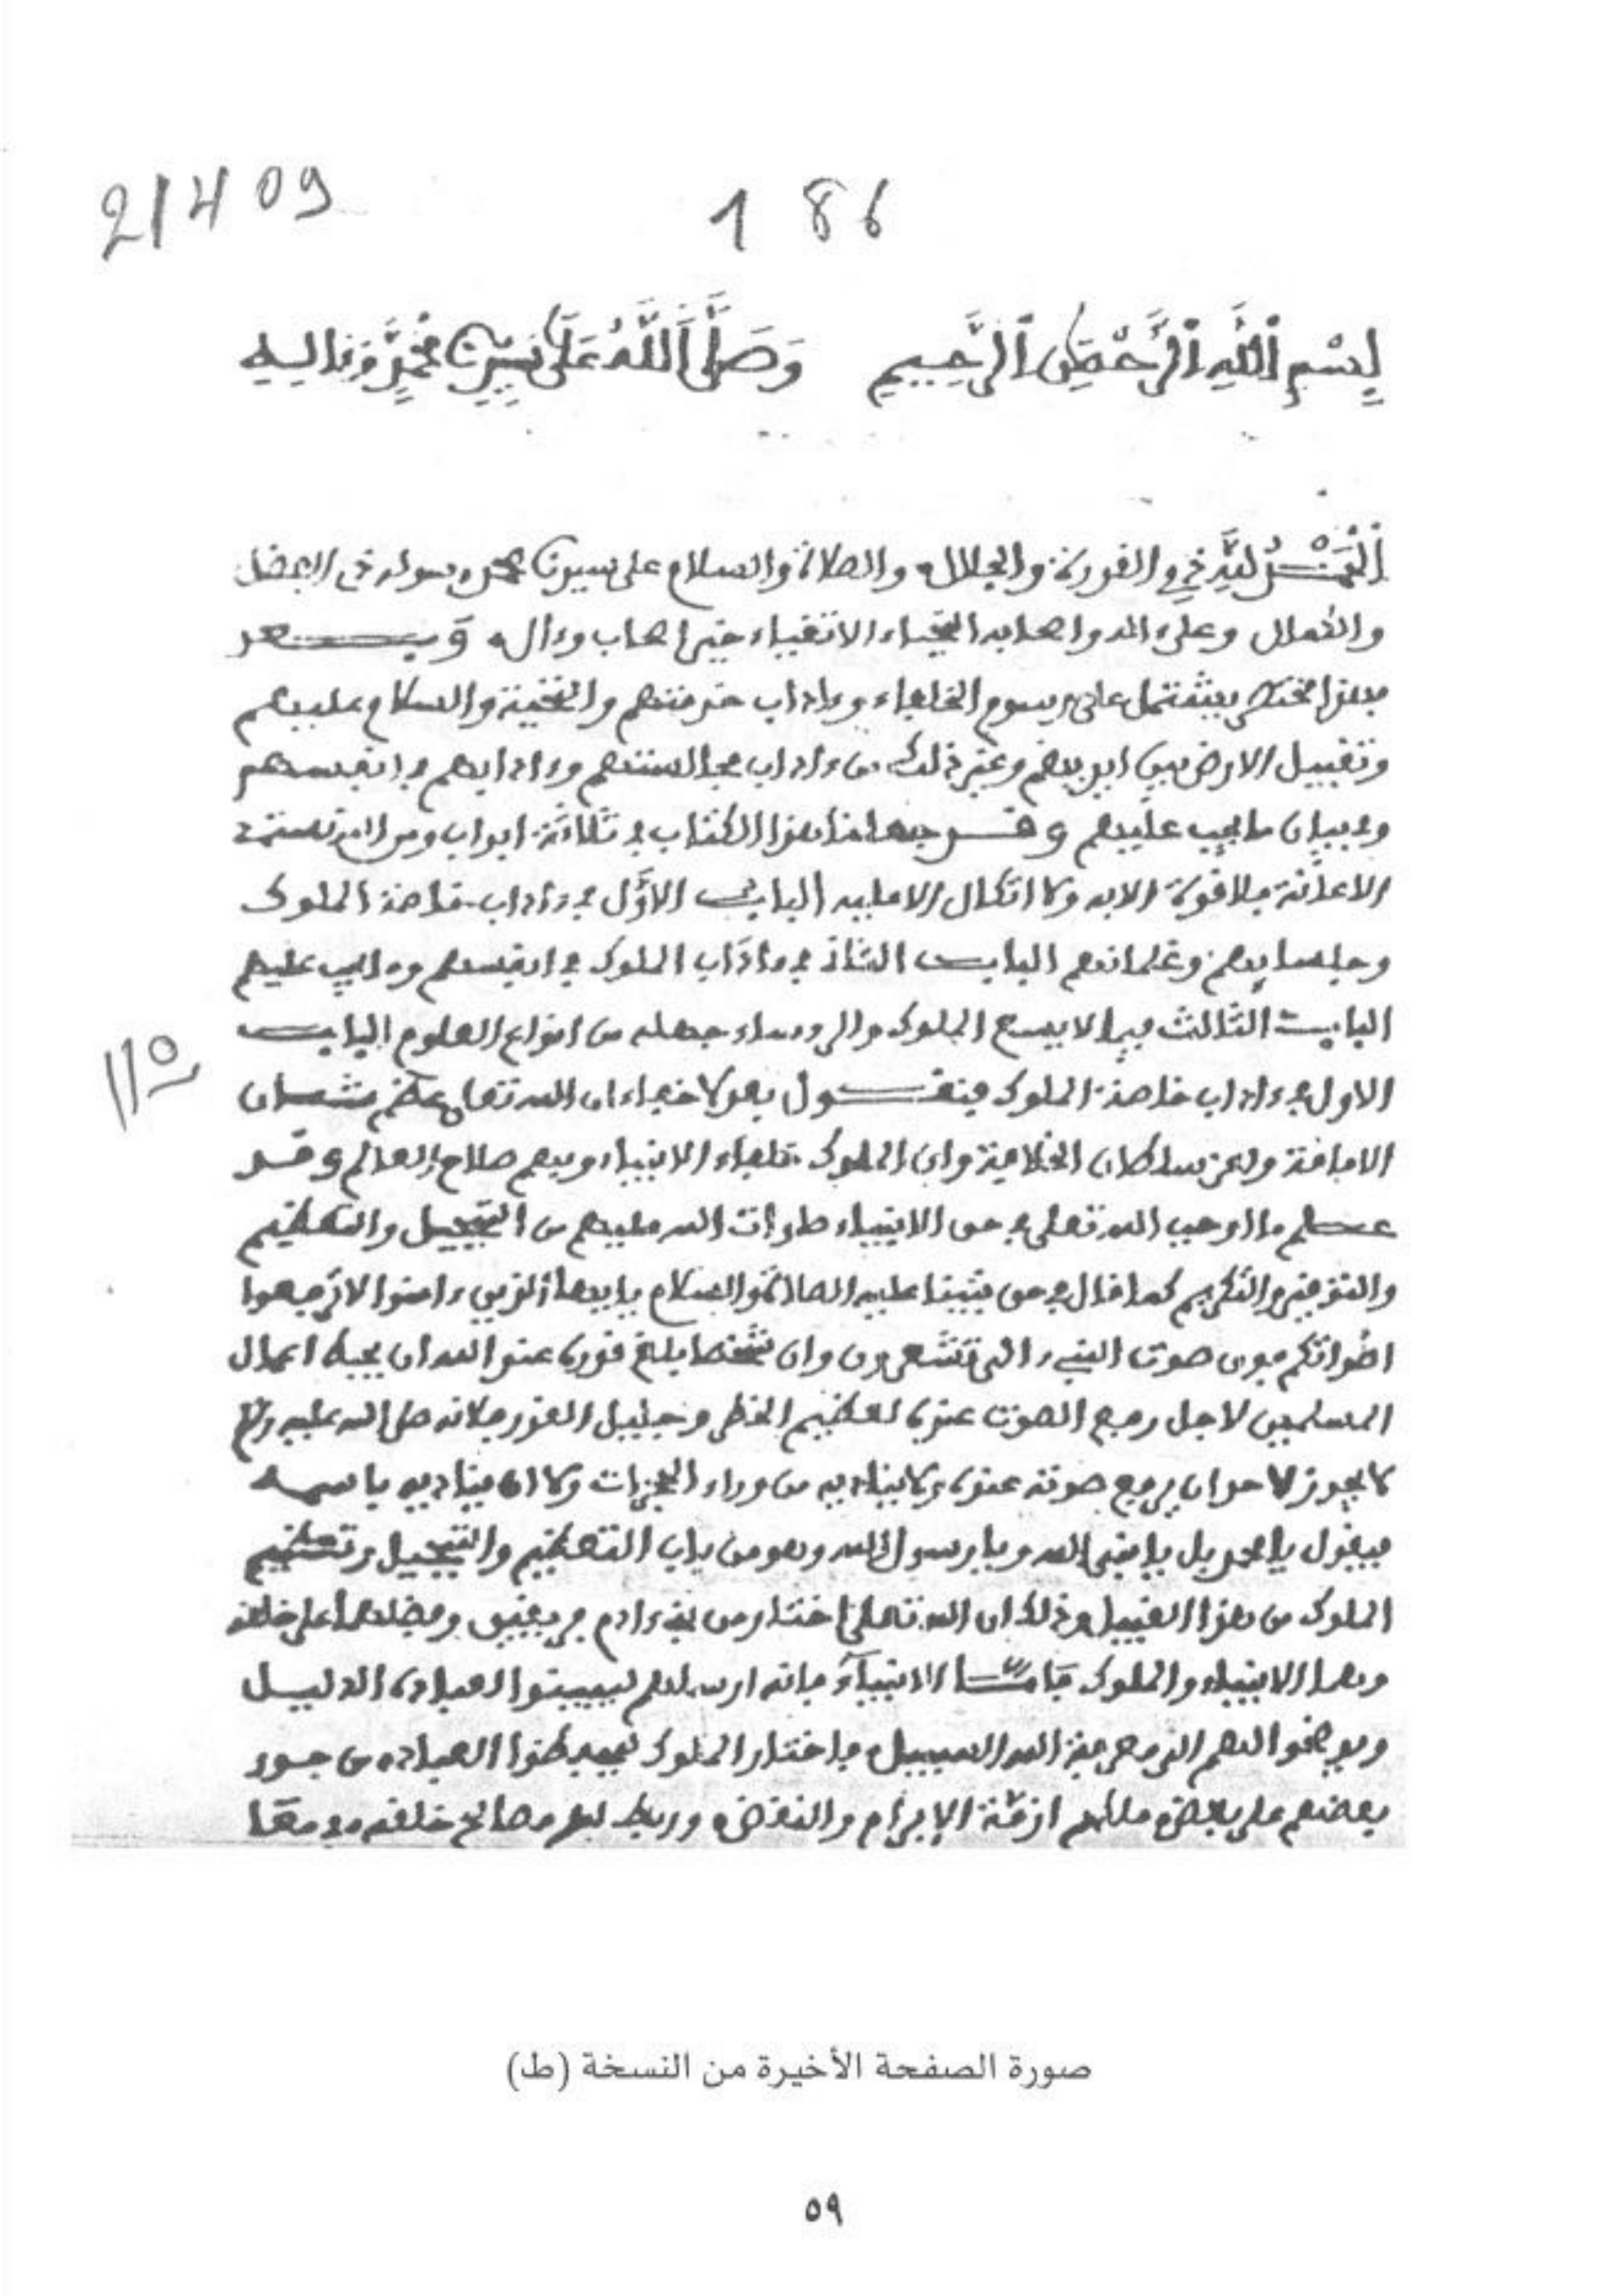 21409
186
بِسْمِ اللَّهِ الرَّحْمَٰنِ الرَّحِيمِ وَصَلَّى اللَّهُ عَلَى سَيِّدِنَا مُحَمَّدٍ وَءَالِهِ
الْحَمْدُ لِلَّهِ ذي القدرة والجلال والصلاة والسلام على سيدنا محمد رسوله ذي الفضل
والكمال وعلى ءاله واصحابه النجباء الاتقياء خير اصحاب وءال وبعد
فهذا مختصر يشتمل على رسوم الخلفاء وءاداب خدمتهم والتحية والسلام عليهم
وتقبيل الارض بين ايديهم وغير ذلك من ءاداب مجالستهم وءادابهم في انفسهم
وبيان ما يجب عليهم وقد جعلنا هذا الكتاب في ثلاثة ابواب ومن الله نستمد
الاعانة فلا قوة الا به ولا اتكال الا عليه الباب الاول في ءاداب خاصة الملوك
وجلسايهم وغلمانهم الباب الثاني في ءاداب الملوك في انفسهم وما يجب عليهم
الباب الثالث فيما لا يسع الملوك والرؤساء جهله من انواع العلوم الباب
الاول في ءاداب خاصة الملوك فنقول لا خفاء ان الله تعالى عظم شان
الامامة واعز سلطان الخلافة وان الملوك خلفاء الانبياء وبهم صلاح العالم وقد
علم ما اوجب الله تعالى في حق الانبياء صلوات الله عليهم من التبجيل والتعظيم
والتوقير والتكريم كما قال في حق نبينا عليه الصلاة والسلام يا ايها الذين ءامنوا لا ترفعوا
اصواتكم فوق صوت النبيء الى تشعرون وان شخصا بلغ قدره عند الله ان يحبط اعمال
المسلمين لاجل رفع الصوت عنده لعظيم الخطر وجليل القدر فلانه صلى الله عليه
لا يجوز لاحد ان يرفع صوته عنده ولا يناديه من وراء الحجرات ولا ان يناديه باسمه
فيقول يا محمد بل يا نبي الله ويا رسول الله وهو من باب التعظيم والتبجيل وتعظيم
الملوك من هذا القبيل وذلك ان الله تعالى اختار من بني ءادم فريقين وفضلهما على خلقه
وهما الانبياء والملوك فاما الانبياء فانه ارسلهم ليبينوا لعباده الدليل
ويوضحوا لهم الى معرفة الله السبيل واختار الملوك ليحفظوا العباد من جور
بعضهم على بعض وملكهم ازمة الابرام والنقض وربط بهم مصالح خلقه في
صورة الصفحة الأخيرة من النسخة (ط)
٥٩